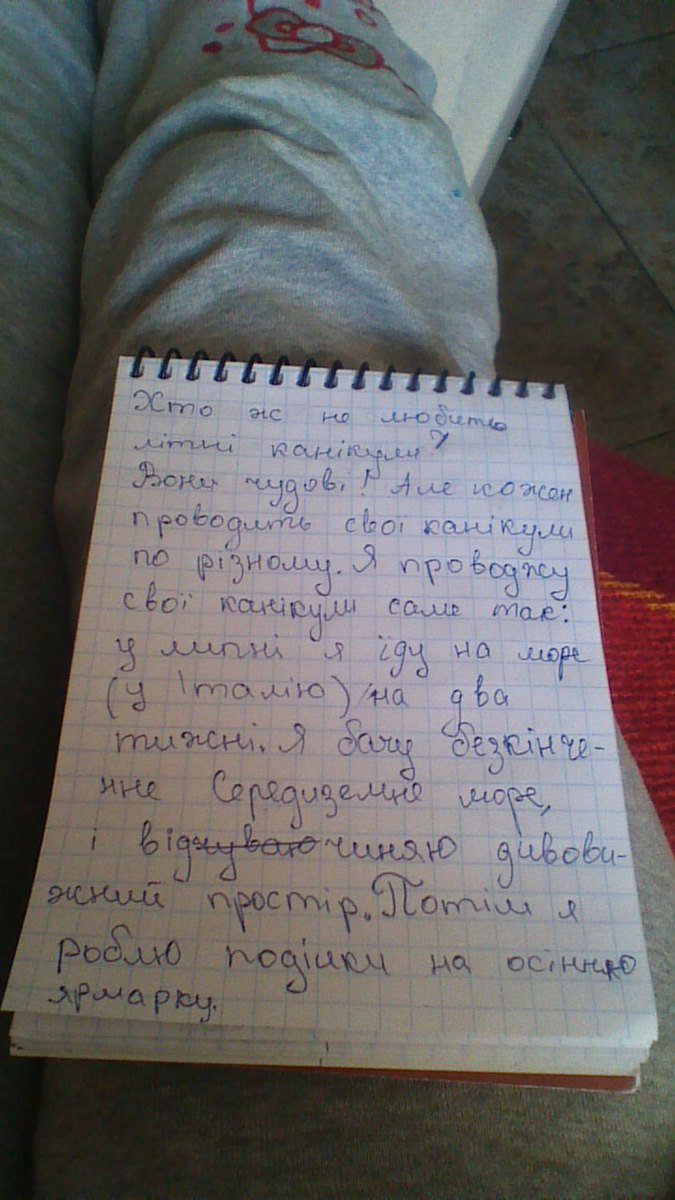 Хто ж не любить
літні канікули?
Вони чудові! Але кожен
проводить свої канікули
по різному. Я проводжу
свої канікули саме так:
у липні я їду на море
(у Італію) на два
тижні. Я бачу безкінче-
нне Середземне море,
і відчуваючиняю дивови-
жний простір. Потім я
роблю поділки на осінню
ярмарку.